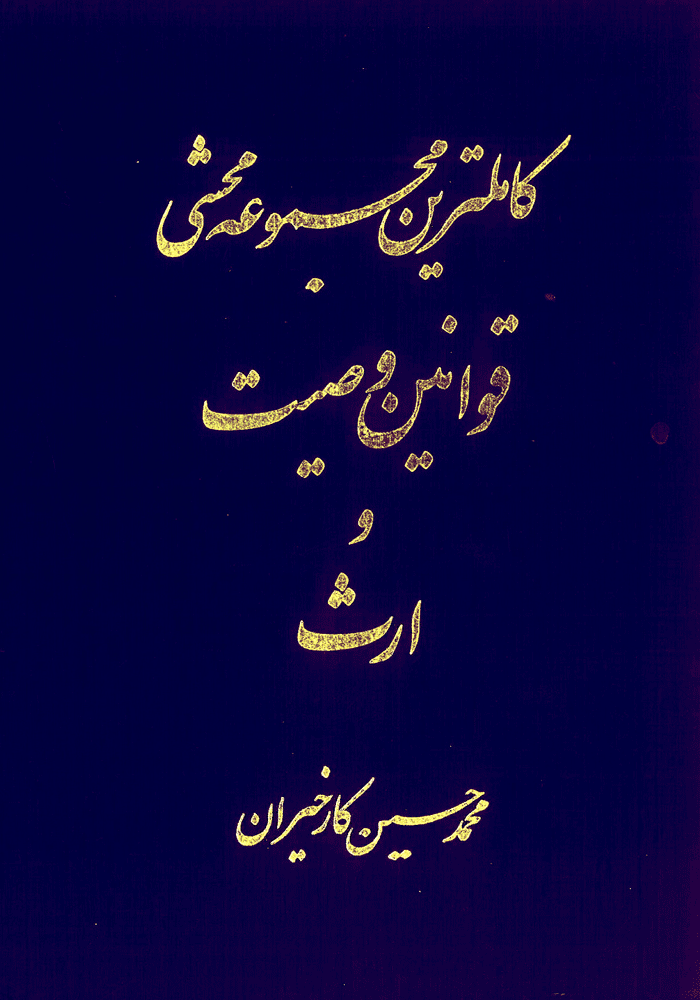 کاملترین مجموعه محشی
قوانین وصیت
و
ارث
محمد حسین کارخیران